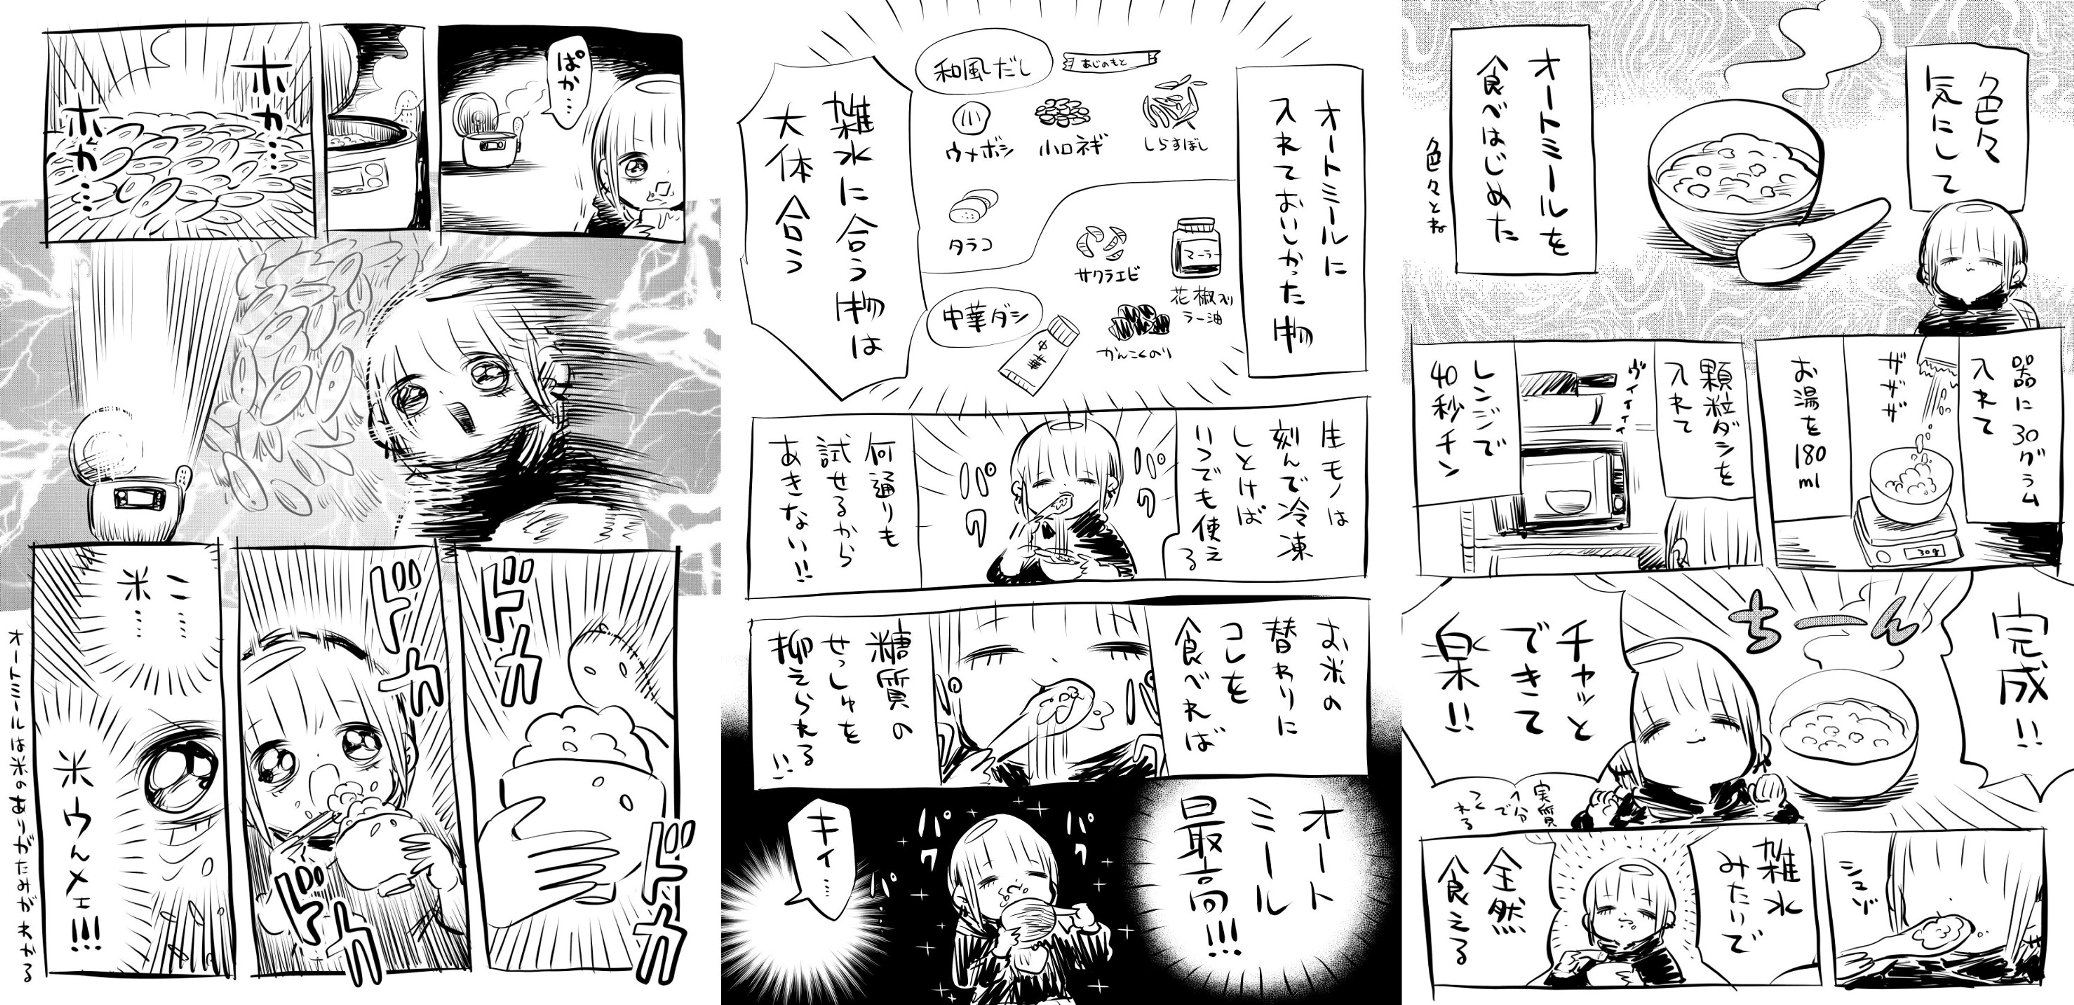 色々
気にして
オートミールを
食べはじめた
色々とね
器に30グラム
入れて
ザザザ
お湯を180ml
顆粒ダシを
入れて
ヴィィィィ
レンジで
40秒チン
完成!!
ちーん
チャッと
できて
楽!!
実質
1分
で
つく
れる
雑水
みたいで
全然
食える
オートミールに
入れておいしかった物
和風だし
あじのもと
ウメボシ
小口ネギ
しらすぼし
タラコ
サクラエビ
マーラー
花椒入り
ラー油
中華ダシ
中華
かんこくのり
雑水に合う物は
大体合う
生モノは
刻んで冷凍
しとけば
いつでも使える
パク
パク
何通りも
試せるから
あきない!!
お米の
替わりに
コレを
食べれば
糖質の
せっしゅを
抑えられる!!
オート
ミール
最高!!!
パク
パク
キィ…
ぱか…
ホカ…
ホカ…
ドカ
ドカ
ドカ
ドカ
こ……
米……
米ウんメェ!!!
オートミールは米のありがたみがわかる